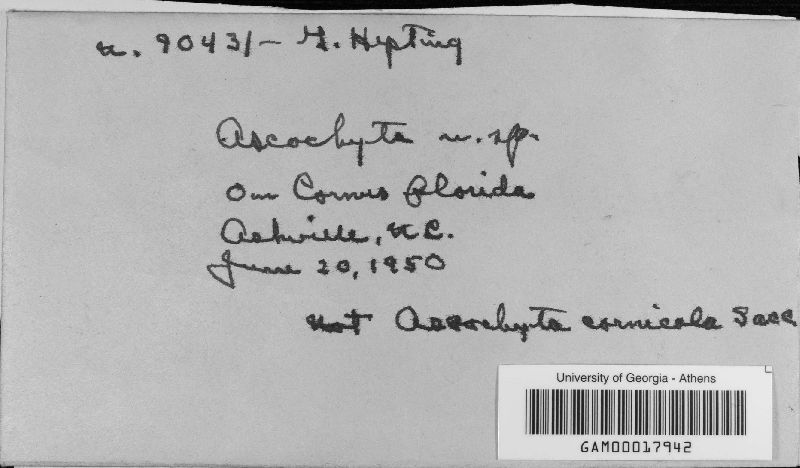 n. 90431 - G. Hepting
Ascochyta n. sp.
On Cornus florida
Ashville, N.C.
June 20, 1950
not Ascochyta cornicola Sacc
University of Georgia - Athens
GAM00017942